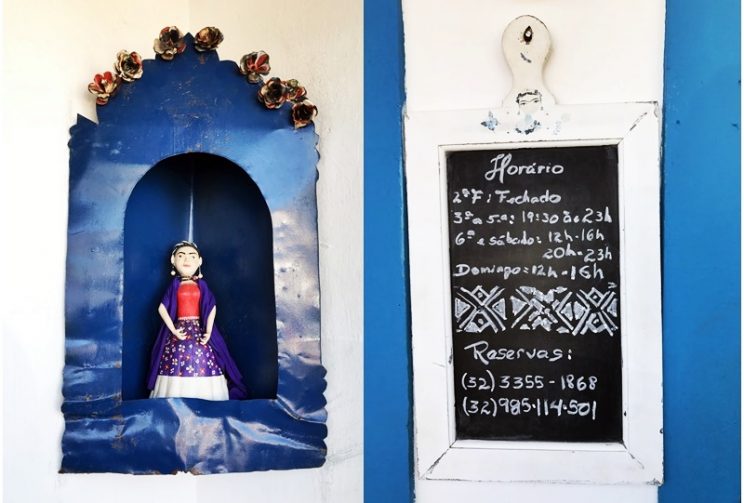 Horário
2ªF: Fechado
3ª a 5ª: 19:30 às 23h
6ª e sábado: 12h-16h
20h-23h
Domingo: 12h-16h
Reservas:
(32) 3355-1868
(32) 985.114.501